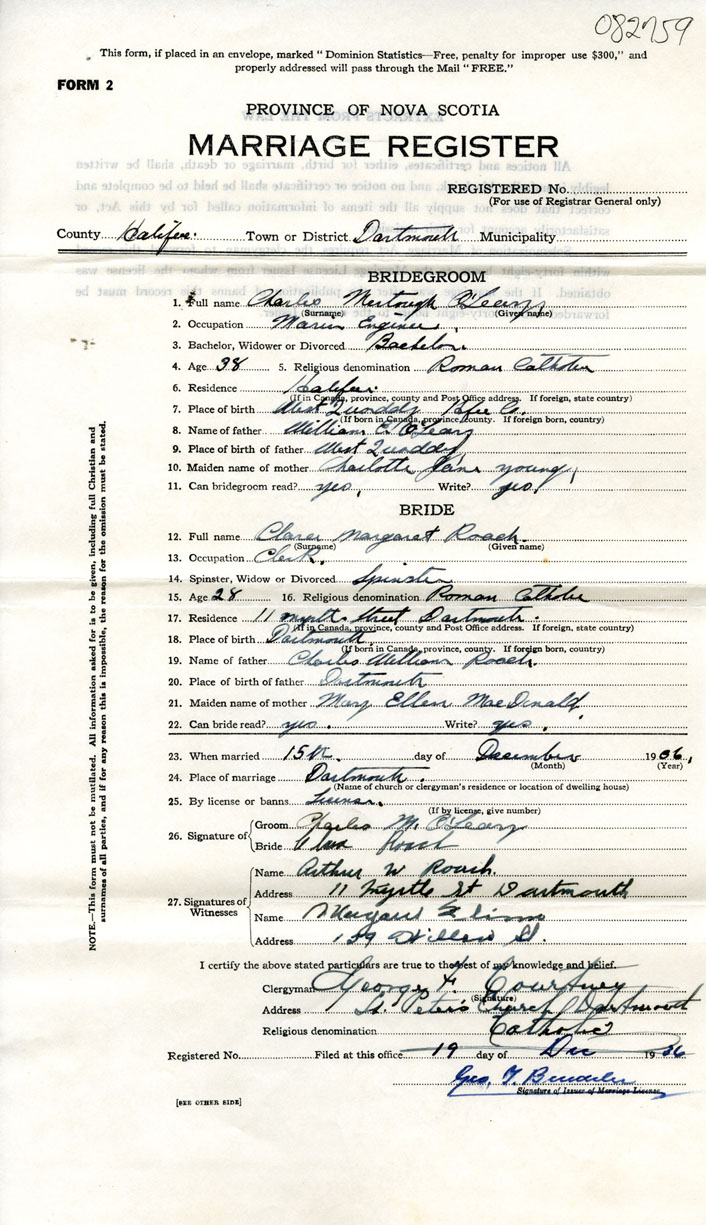 082759
This form, if placed in an envelope, marked "Dominion Statistics—Free, penalty for improper use $300," and
properly addressed will pass through the Mail "FREE."
FORM 2
PROVINCE OF NOVA SCOTIA
MARRIAGE REGISTER
REGISTERED No.
(For use of Registrar General only)
County Halifax. Town or District Dartmouth Municipality
BRIDEGROOM
1. Full name Charles O'Leary
(Surname) (Given name)
2. Occupation Marine Engineer
3. Bachelor, Widower or Divorced Bachelor.
4. Age 38 5. Religious denomination Roman Catholic
6. Residence Halifax.
(If in Canada, province, county and Post Office address. If foreign, state country)
7. Place of birth West Quoddy Hfx Co.
(If born in Canada, province, county. If foreign born, country)
8. Name of father William E. O'Leary
9. Place of birth of father West Quoddy
10. Maiden name of mother Charlotte Jane young
11. Can bridegroom read? yes, Write? yes!
BRIDE
12. Full name Margaret Roach.
(Surname) (Given name)
13. Occupation Clerk.
14. Spinster, Widow or Divorced Spinster
15. Age 28 16. Religious denomination Roman Catholic
17. Residence 11 Myrtle Street Dartmouth.
(If in Canada, province, county and Post Office address. If foreign, state country)
18. Place of birth Dartmouth.
(If born in Canada, province, county. If foreign born, country)
19. Name of father Charles William Roach.
20. Place of birth of father Dartmouth
21. Maiden name of mother Mary Ellen MacDonald
22. Can bride read? yes. Write? yes.
23. When married 15th. day of December 1936,
(Month) (Year)
24. Place of marriage Dartmouth.
(Name of church or clergyman's residence or location of dwelling house)
25. By license or banns License.
(If by license, give number)
26. Signature of
Groom Charles M. O'Leary
Bride Roach
27. Signatures of Witnesses
Name Arthur W Roach.
Address 11 Myrtle St Dartmouth
Name Margaret
Address 159 Willow St.
I certify the above stated particulars are true to the best of my knowledge and belief.
Clergyman George F. Courtney
(Signature)
Address St. Peter's Church, Dartmouth
Religious denomination Catholic
Registered No. Filed at this office 19 day of Dec 1936
Geo. T.
Signature of Issuer of Marriage License
[SEE OTHER SIDE]
NOTE.—This form must not be mutilated. All information asked for is to be given, including full Christian and
surnames of all parties, and if for any reason this is impossible, the reason for the omission must be stated.